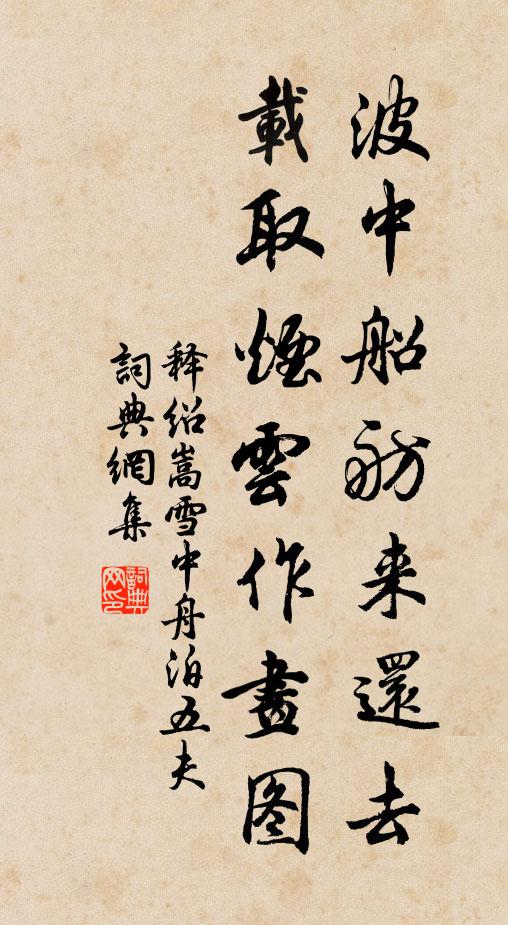 波中船舫来還去
載取煙雲作畫图
释绍嵩雪中舟泊五夫
詞典網集
詞典网印